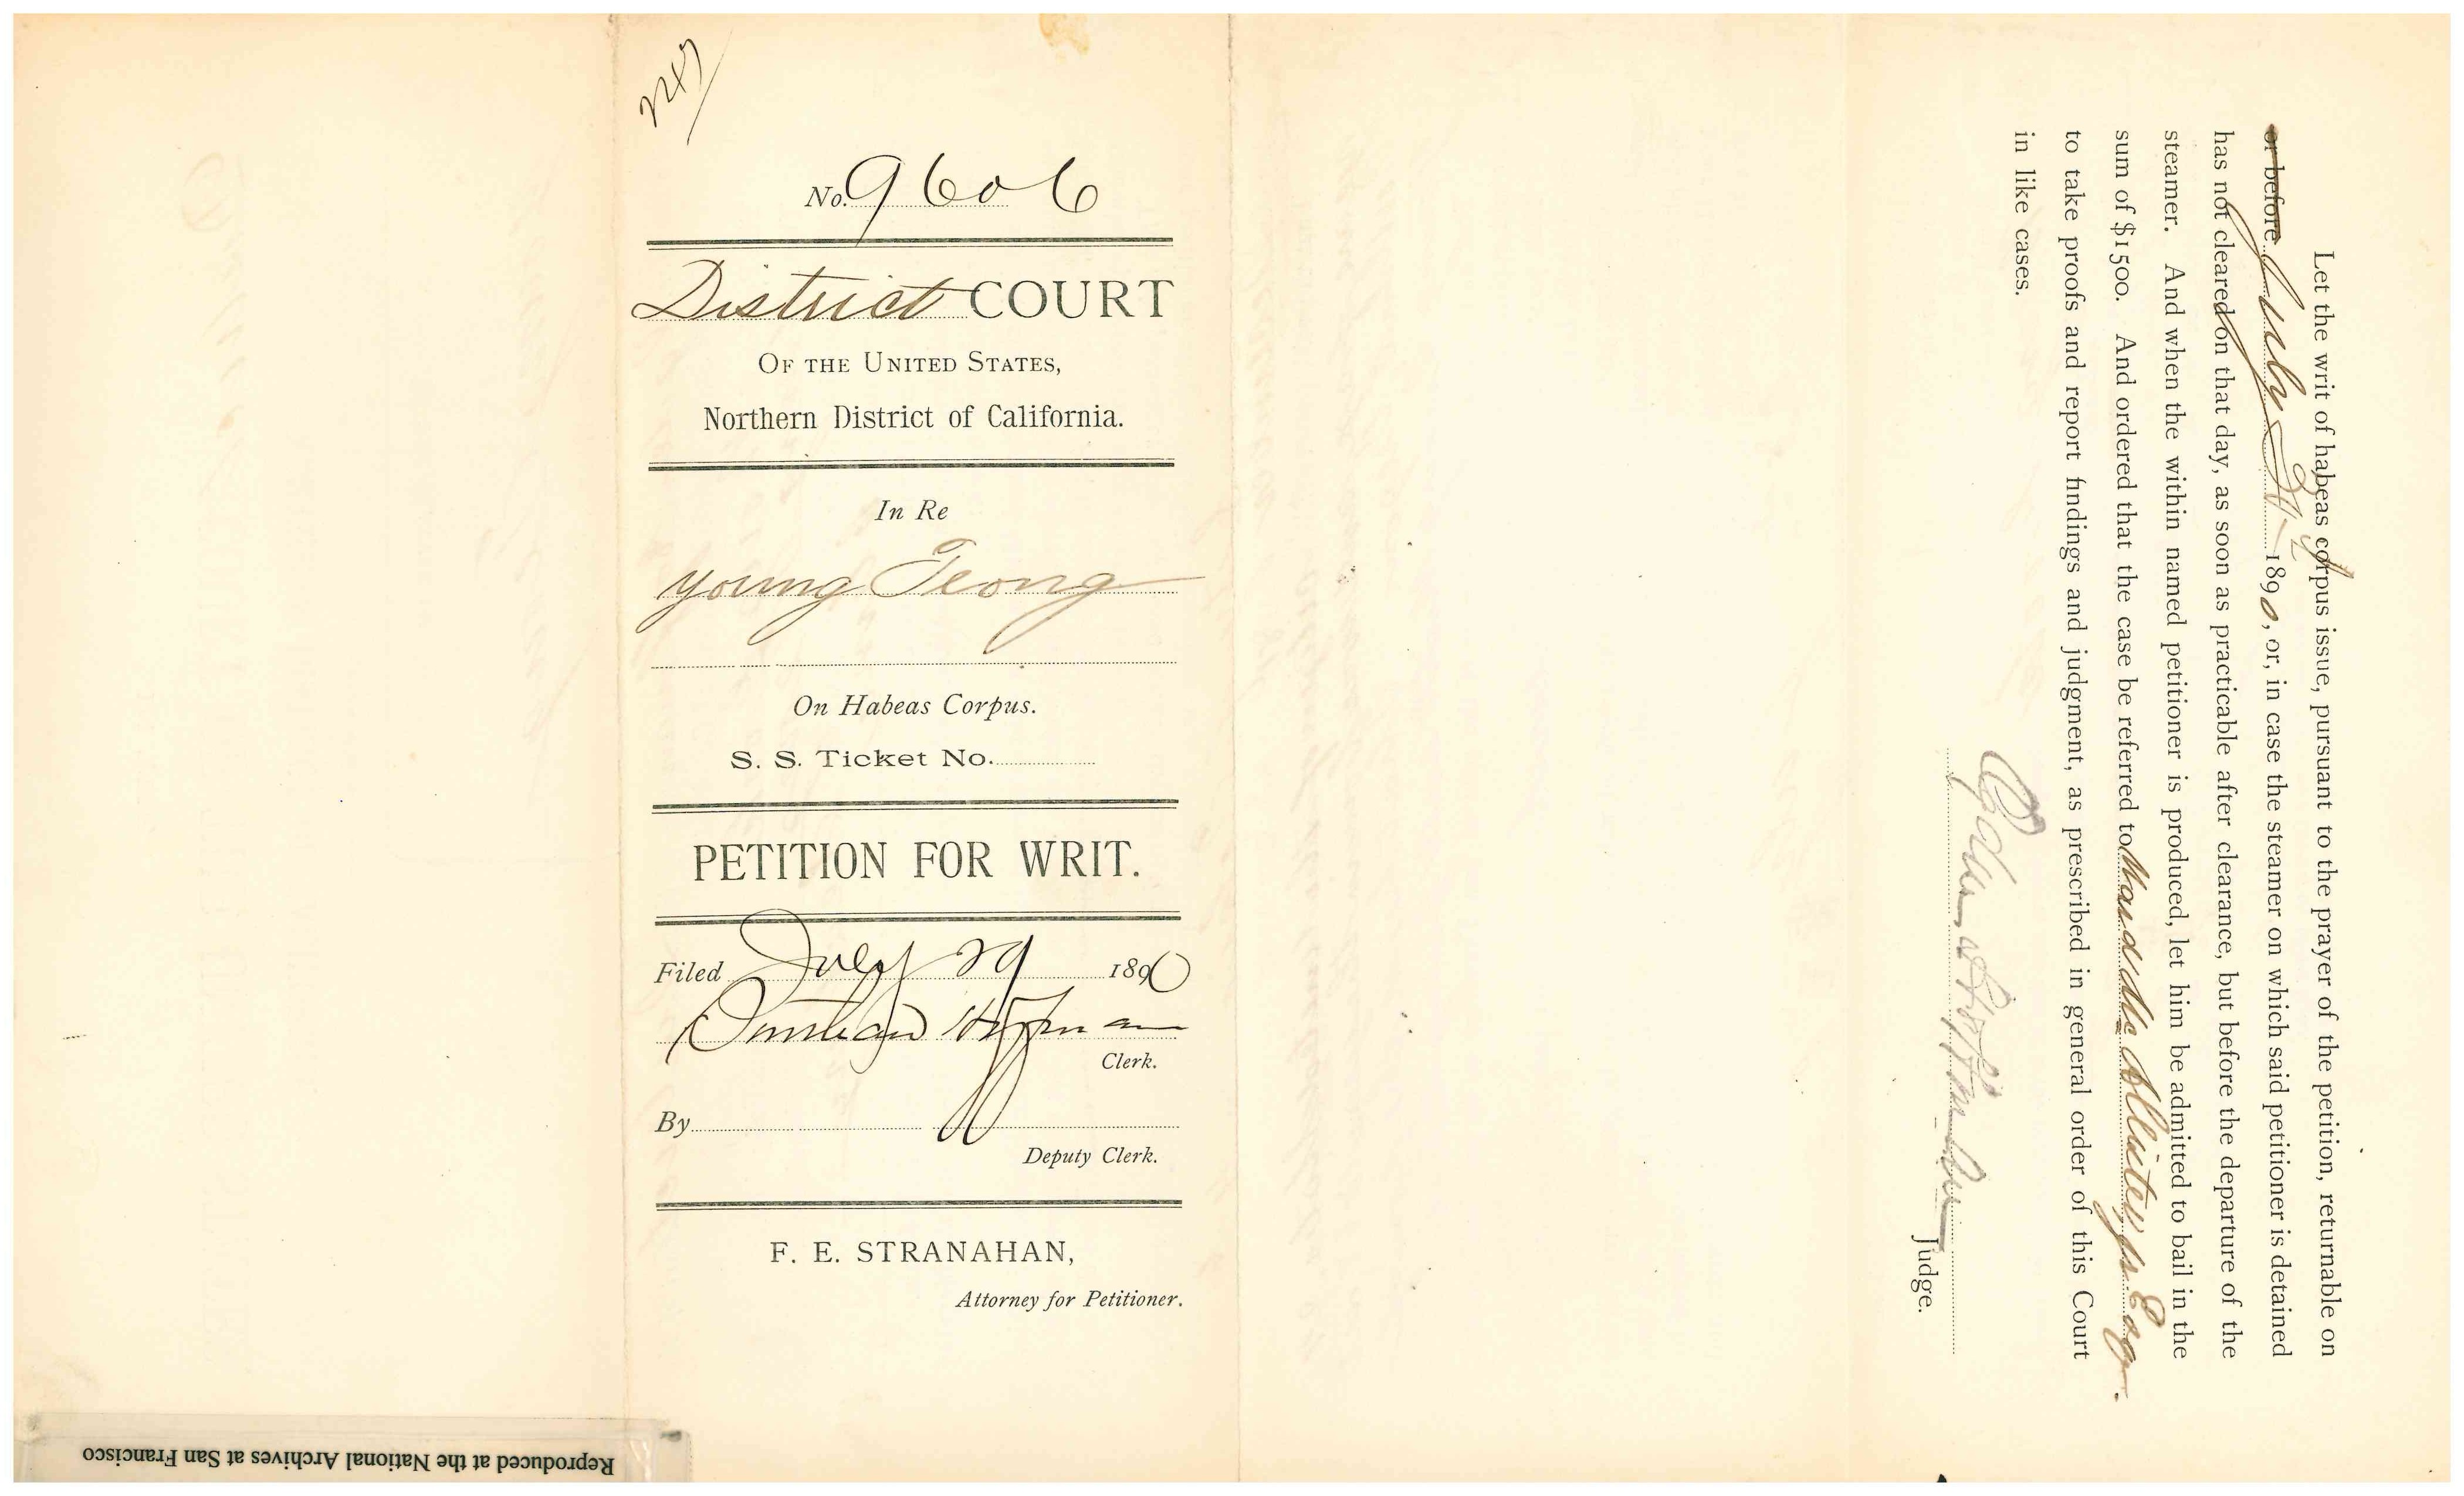 No. 9606
District COURT
OF THE UNITED STATES,
Northern District of California.
In Re
Young Teong
On Habeas Corpus.
S. S. Ticket No.
PETITION FOR WRIT.
Filed July 29 1890
Southard Hoffman
Clerk.
By
Deputy Clerk.
F. E. STRANAHAN,
Attorney for Petitioner.
Let the writ of habeas corpus issue, pursuant to the prayer of the petition, returnable on
or before July 1890, or, in case the steamer on which said petitioner is detained
has not cleared on that day, as soon as practicable after clearance, but before the departure of the
steamer. And when the within named petitioner is produced, let him be admitted to bail in the
sum of $1500. And ordered that the case be referred to Ward McAllister, Jr. Esq.
to take proofs and report findings and judgment, as prescribed in general order of this Court
in like cases.
Ogden Hoffman
Judge.
Reproduced at the National Archives at San Francisco